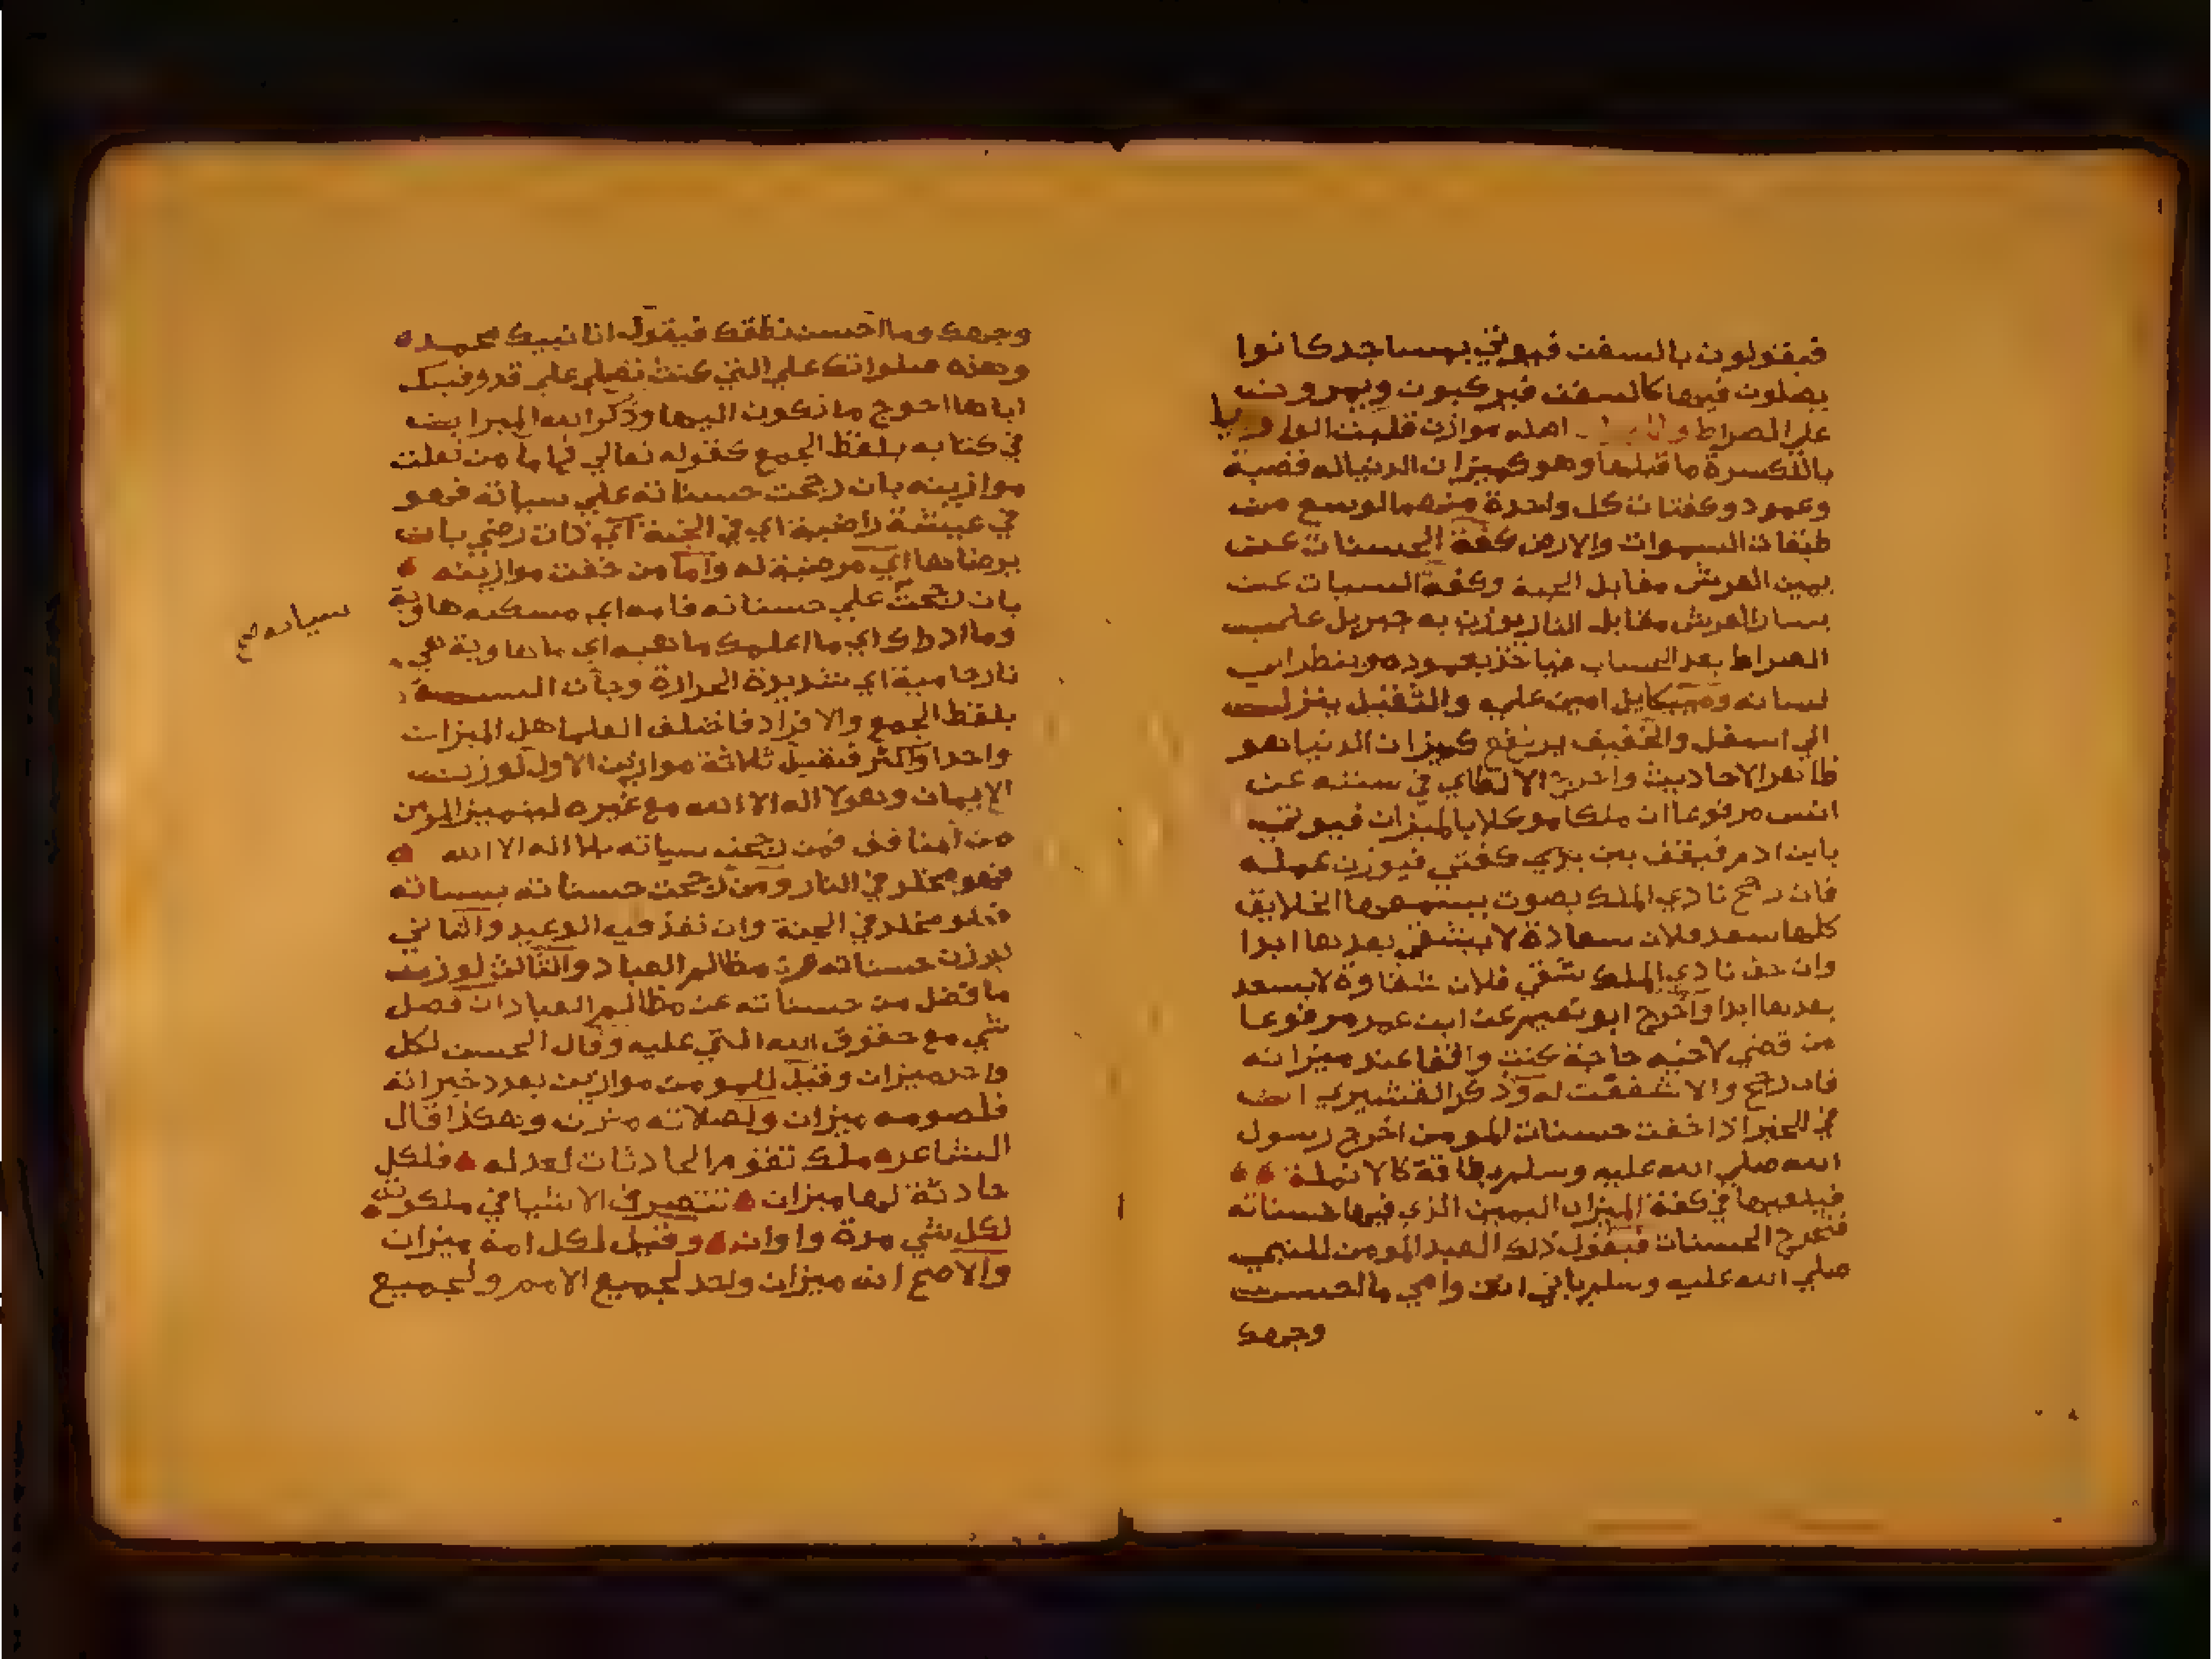 فيقولون بالسفن فيوتي بمساجد كانوا
يصلون فيها كالسفن فيركبون ويمرون
علي الصراط اصله موازن قلبت الواو يا
بالكسرة ما قبلها وهو كميزان الدنيا له قصبة
وعمود وكفتان كل واحدة منهما اوسع من
طبقات السموات والارض كفة الحسنات عن
يمين العرش مقابل الجنة وكفة السيات عن
يسار العرش مقابل النار يوزن به جبريل علي
الصراط بعد الحساب فياخذ بعموده وينظر الي
لسانه وميكايل امين عليه والثقيل ينزل
الي اسفل والخفيف يرتفع كميزان الدنيا هو
ظاهر الاحاديث واخرج في سننه عن
انس مرفوعا ان ملكا موكلا بالميزان فيوتي
بابن ادم فيقف بين يدي كفتي فيوزن عمله
فان رجح نادي الملك بصوت يسمعها الخلايق
كلها سعد فلان سعادة لا يشقي بعدها ابدا
وان خف نادي الملك شقي فلان شقاوة لا يسعد
بعدها ابدا واخرج ابو نعيم عن ابن عمر مرفوعا
من قضي لاخيه حاجة كنت واقفا عند ميزانه
فان رجح والا شفعت له وذكر القشيري ان
في الخبر اذا خفت حسنات المومن اخرج رسول
الله صلي الله عليه وسلم بطاقة كالانملة
فيلقيها في كفة الميزان اليمين الذي فيها حسناته
فترجح الحسنات فيقول ذلك العبد المومن للنبي
صلي الله عليه وسلم بابي انت وامي ما احسن
وجهك
وجهك وما احسن خلقك فيقول انا نبيك محمد
وهذه صلواتك علي التي كنت تصلي علي قد وفيتك
اياها احوج ما تكون اليها وذكر الله الميزان
في كتابه بلفظ الجمع كقوله تعالي فاما من ثقلت
موازينه بان رجحت حسناته علي سياته فهو
في عيشة راضية اي في الجنة اي ذات رضي بان
يرضاها اي مرضية له واما من خفت موازينه
بان رجحت علي حسناته فامه اي مسكنه هاوية
سياته صح
وما ادراك اي ما اعلمك ماهيه اي ما هاوية هي
نار حامية اي شديدة الحرارة وجا في السنة
بلفظ الجمع والافراد فاختلف العلما هل الميزان
واحد او اكثر فقيل ثلاثة موازين الاول لوزن
الايمان وهو لا اله الا الله مع غيره ليتميز المومن
من المنافق فمن رجحت سياته بلا اله الا الله
فهو مخلد في النار ومن رجحت حسناته بسياته
فهو مخلد في الجنة وان نفذ فيه الوعيد والثاني
لوزن حسناته عن مظالم العباد والثالث لوزن
ما فضل من حسناته عن مظالم العباد ان فضل
شي مع حقوق الله التي عليه وقال الحسن لكل
واحد ميزان وقيل للمومن موازين بعدد خيراته
فلصومه ميزان ولصلاته ميزن وهكذا قال
الشاعر ملك تقوم الحادثات لعدله فلكل
حادثة لها ميزان تتصرف الاشيا في ملكوته
لكل شي مدة واوان وقيل لكل امة ميزان
والاصح انه ميزان واحد لجميع الامم ولجميع